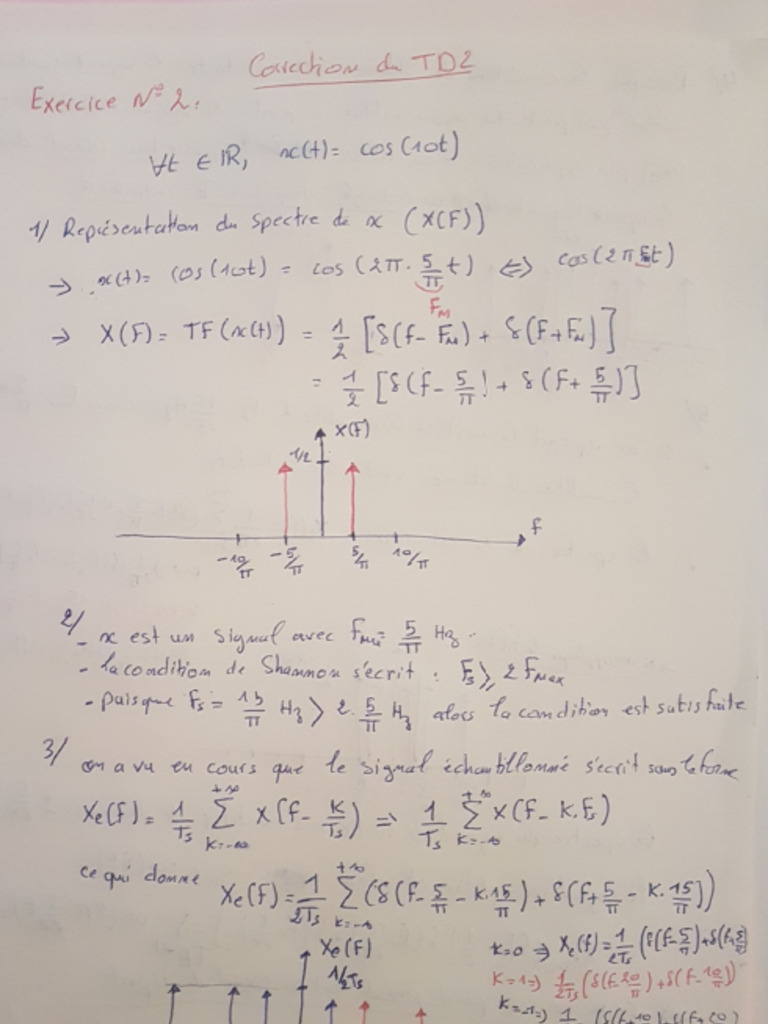 Correction du TD2
Exercice N° 2.
∀t ∈ IR, x(t)= cos(10t)
1/ Représentation du spectre de x (X(F))
→ x(t)= cos(10t) = cos(2π. 5/π t) ⇔ cos(2π t)
F_M
→ X(F)= TF(x(t)) = 1/2 [δ(f- F_M) + δ(F+F_M)]
= 1/2 [δ(f- 5/π) + δ(F+ 5/π)]
X(F)
1/2
f
-10/π -5/π 5/π 10/π
2/
- x est un signal avec = 5/π Hz.
- la condition de Shannon s'écrit : Fs ≥ 2 Fmax
- Puisque Fs = 15/π Hz > 2. 5/π Hz alors la condition est satisfaite
3/ on a vu en cours que le signal échantillonné s'écrit sous la forme
Xe(F)= 1/Ts Σ_{K=-∞}^{+∞} X(f- K/Ts) => 1/Ts Σ_{K=-∞}^{+∞} X(f- K.Fs)
ce qui donne Xe(F) = 1/2Ts Σ_{K=-∞}^{+∞} (δ(f- 5/π - K.15/π) + δ(f+ 5/π - K.15/π))
Xe(F)
1/2Ts
K=0 => Xe(f)= 1/2Ts (δ(f- 5/π)+δ(f+ 5/π)
K=1=> 1/2Ts (δ(f- 20/π)+δ(f- 10/π))
K=-1=>